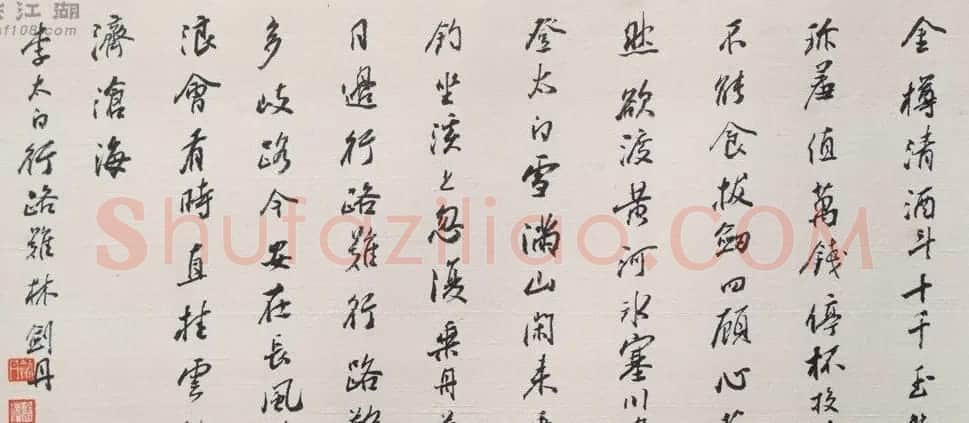 金樽清酒斗十千玉
珎羞值萬錢停杯投
不能食拔劍四顧心
然欲渡黄河冰塞川
登太白雪滿山閑来
釣坐溪上忽復乘舟
日邊行路難行路難
多岐路今安在長風
浪會有時直挂雲
濟滄海
李太白行路難林劍丹
江湖
f108.com
Shufaziliao.COM